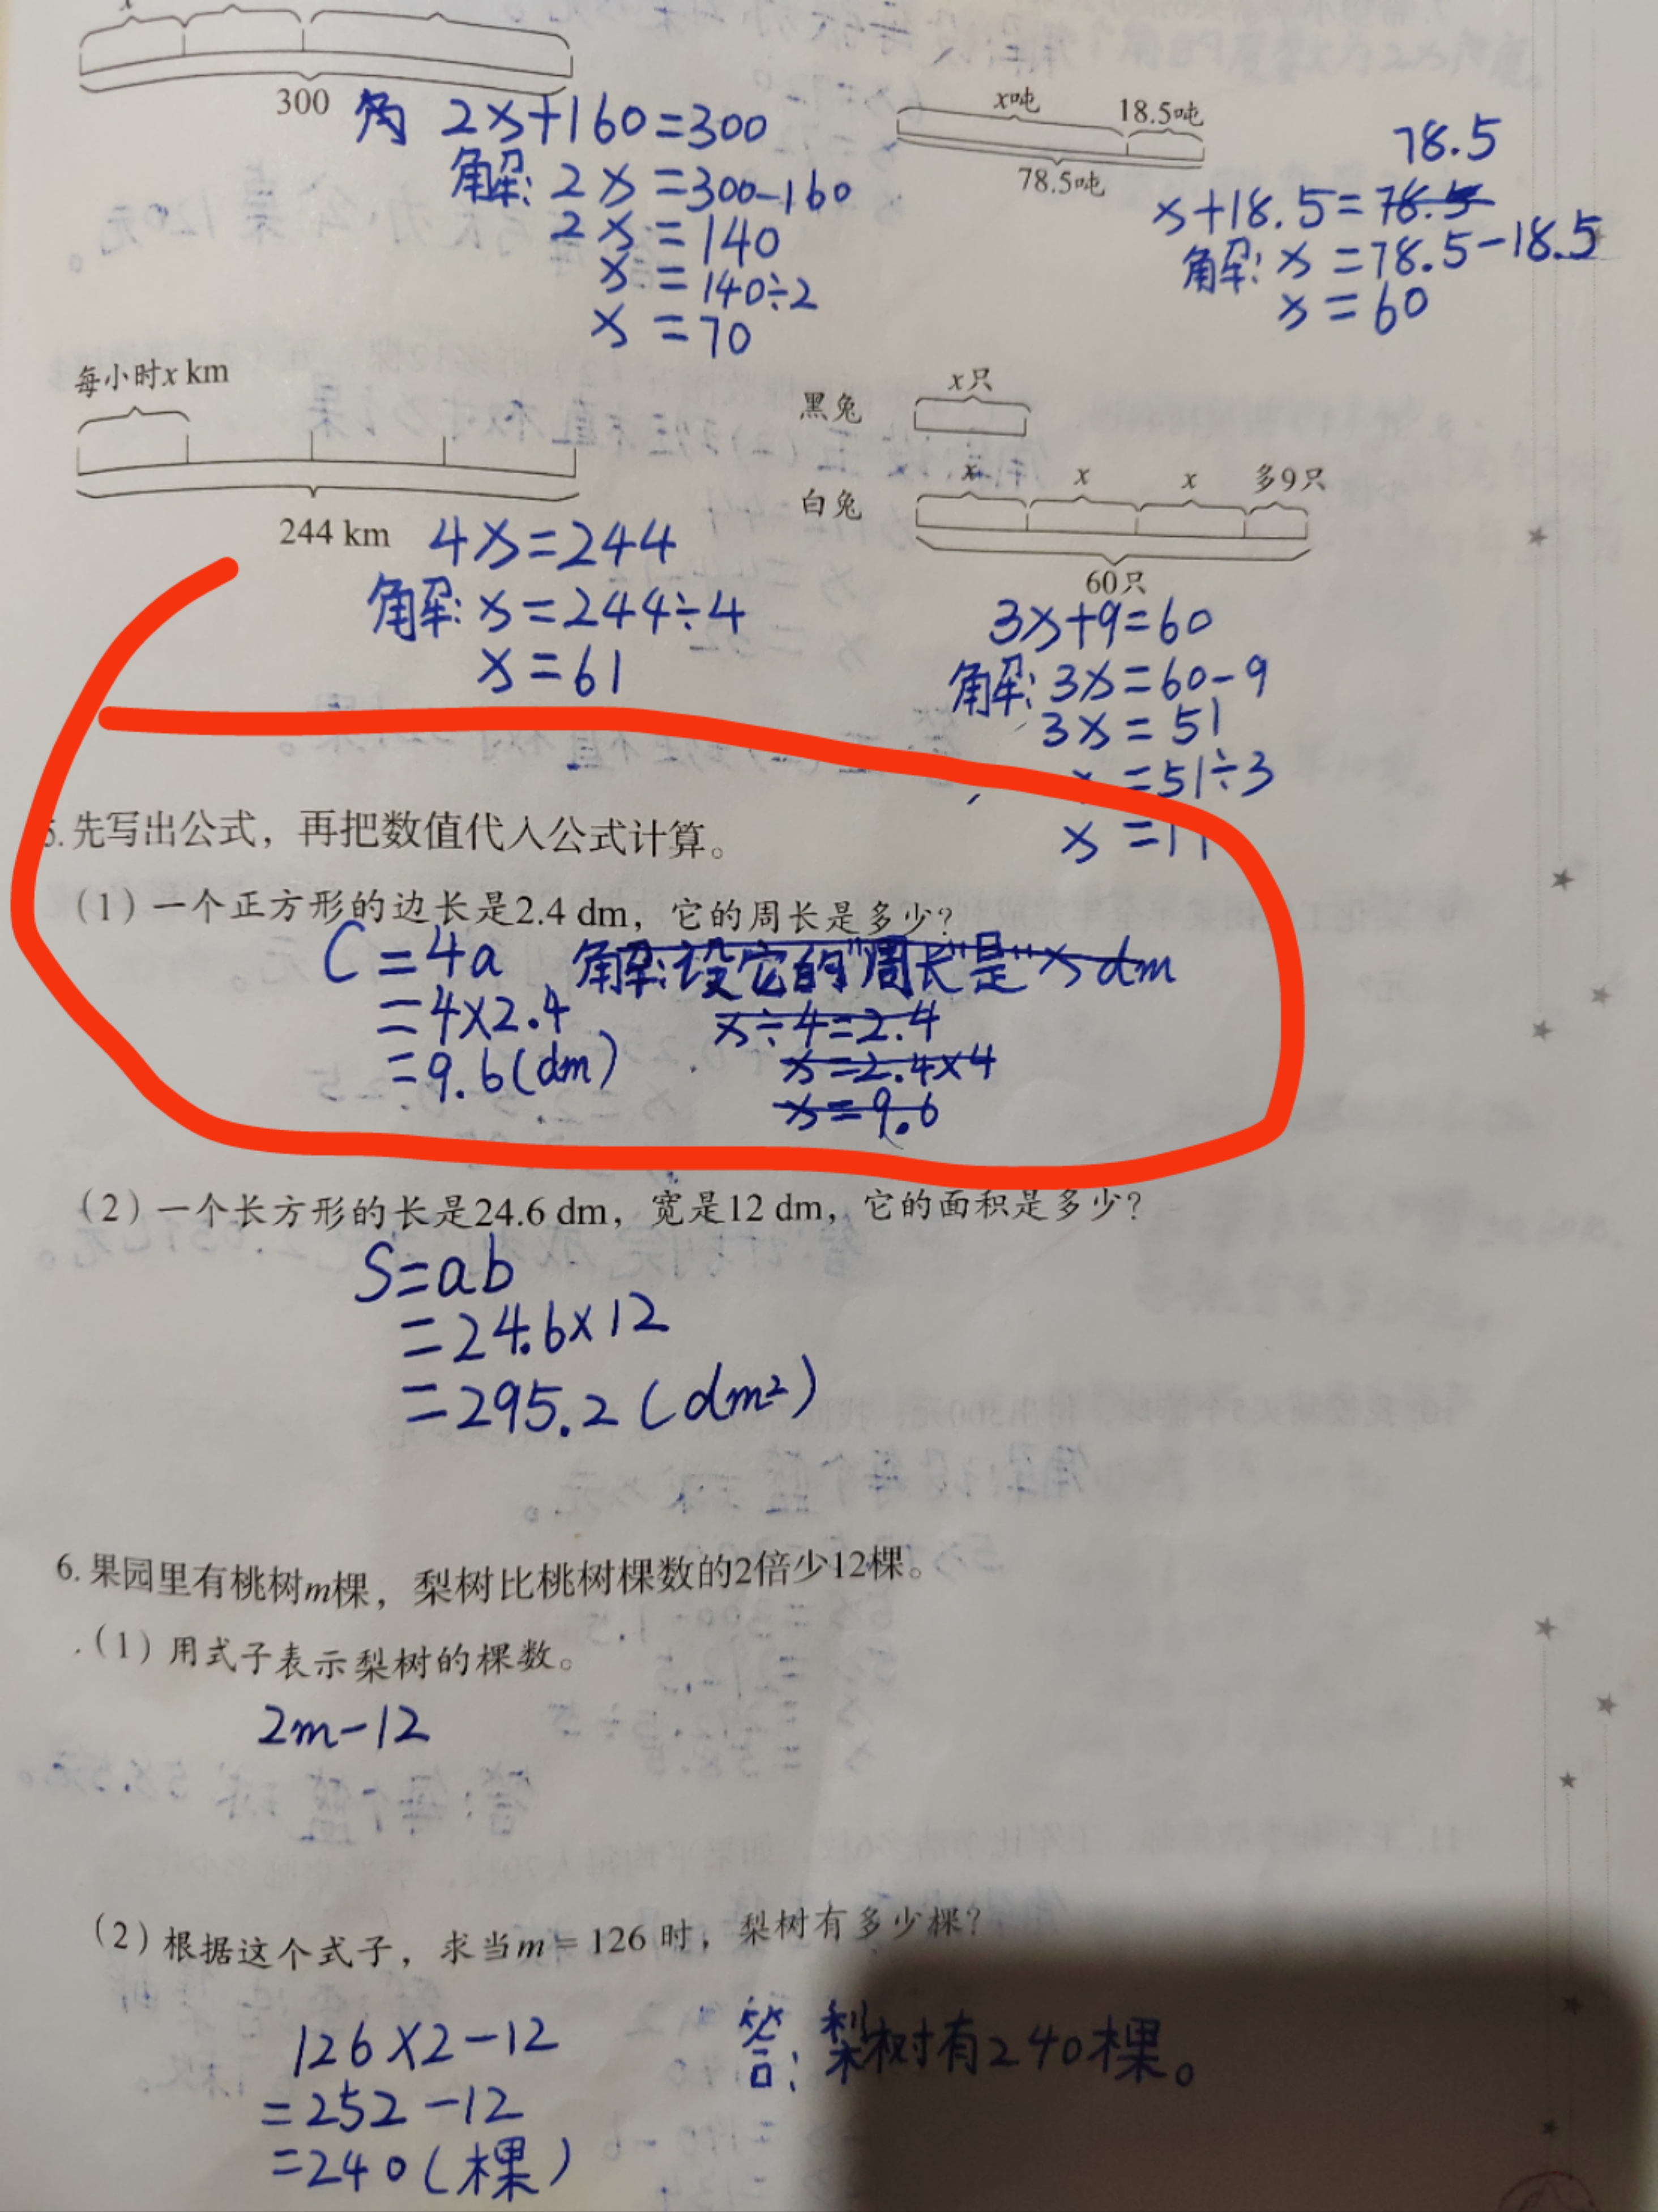 x
300
2x+160=300
解: 2x=300-160
2x=140
x=140÷2
x=70
x吨 18.5吨
78.5吨
78.5
x+18.5=78.5
解: x=78.5-18.5
x=60
每小时x km
244 km
4x=244
解: x=244÷4
x=61
黑兔
x只
白兔
x x x 多9只
60只
3x+9=60
解: 3x=60-9
3x=51
x=51÷3
x=17
5.先写出公式，再把数值代入公式计算。
(1)一个正方形的边长是2.4 dm，它的周长是多少?
C=4a
=4×2.4
=9.6(dm)
解:设它的"周长"是"x dm
x÷4=2.4
x=2.4×4
x=9.6
(2)一个长方形的长是24.6 dm，宽是12 dm，它的面积是多少?
S=ab
=24.6×12
=295.2(dm²)
6.果园里有桃树m棵，梨树比桃树棵数的2倍少12棵。
(1)用式子表示梨树的棵数。
2m-12
(2)根据这个式子，求当m=126时，梨树有多少棵?
126×2-12
=252-12
=240(棵)
答:梨树有240棵。